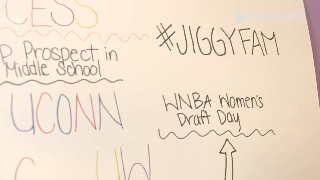 CESS
#JIGGYFAM
P Prospect in
Middle School
WNBA Women's
Draft Day
UCONN
UW